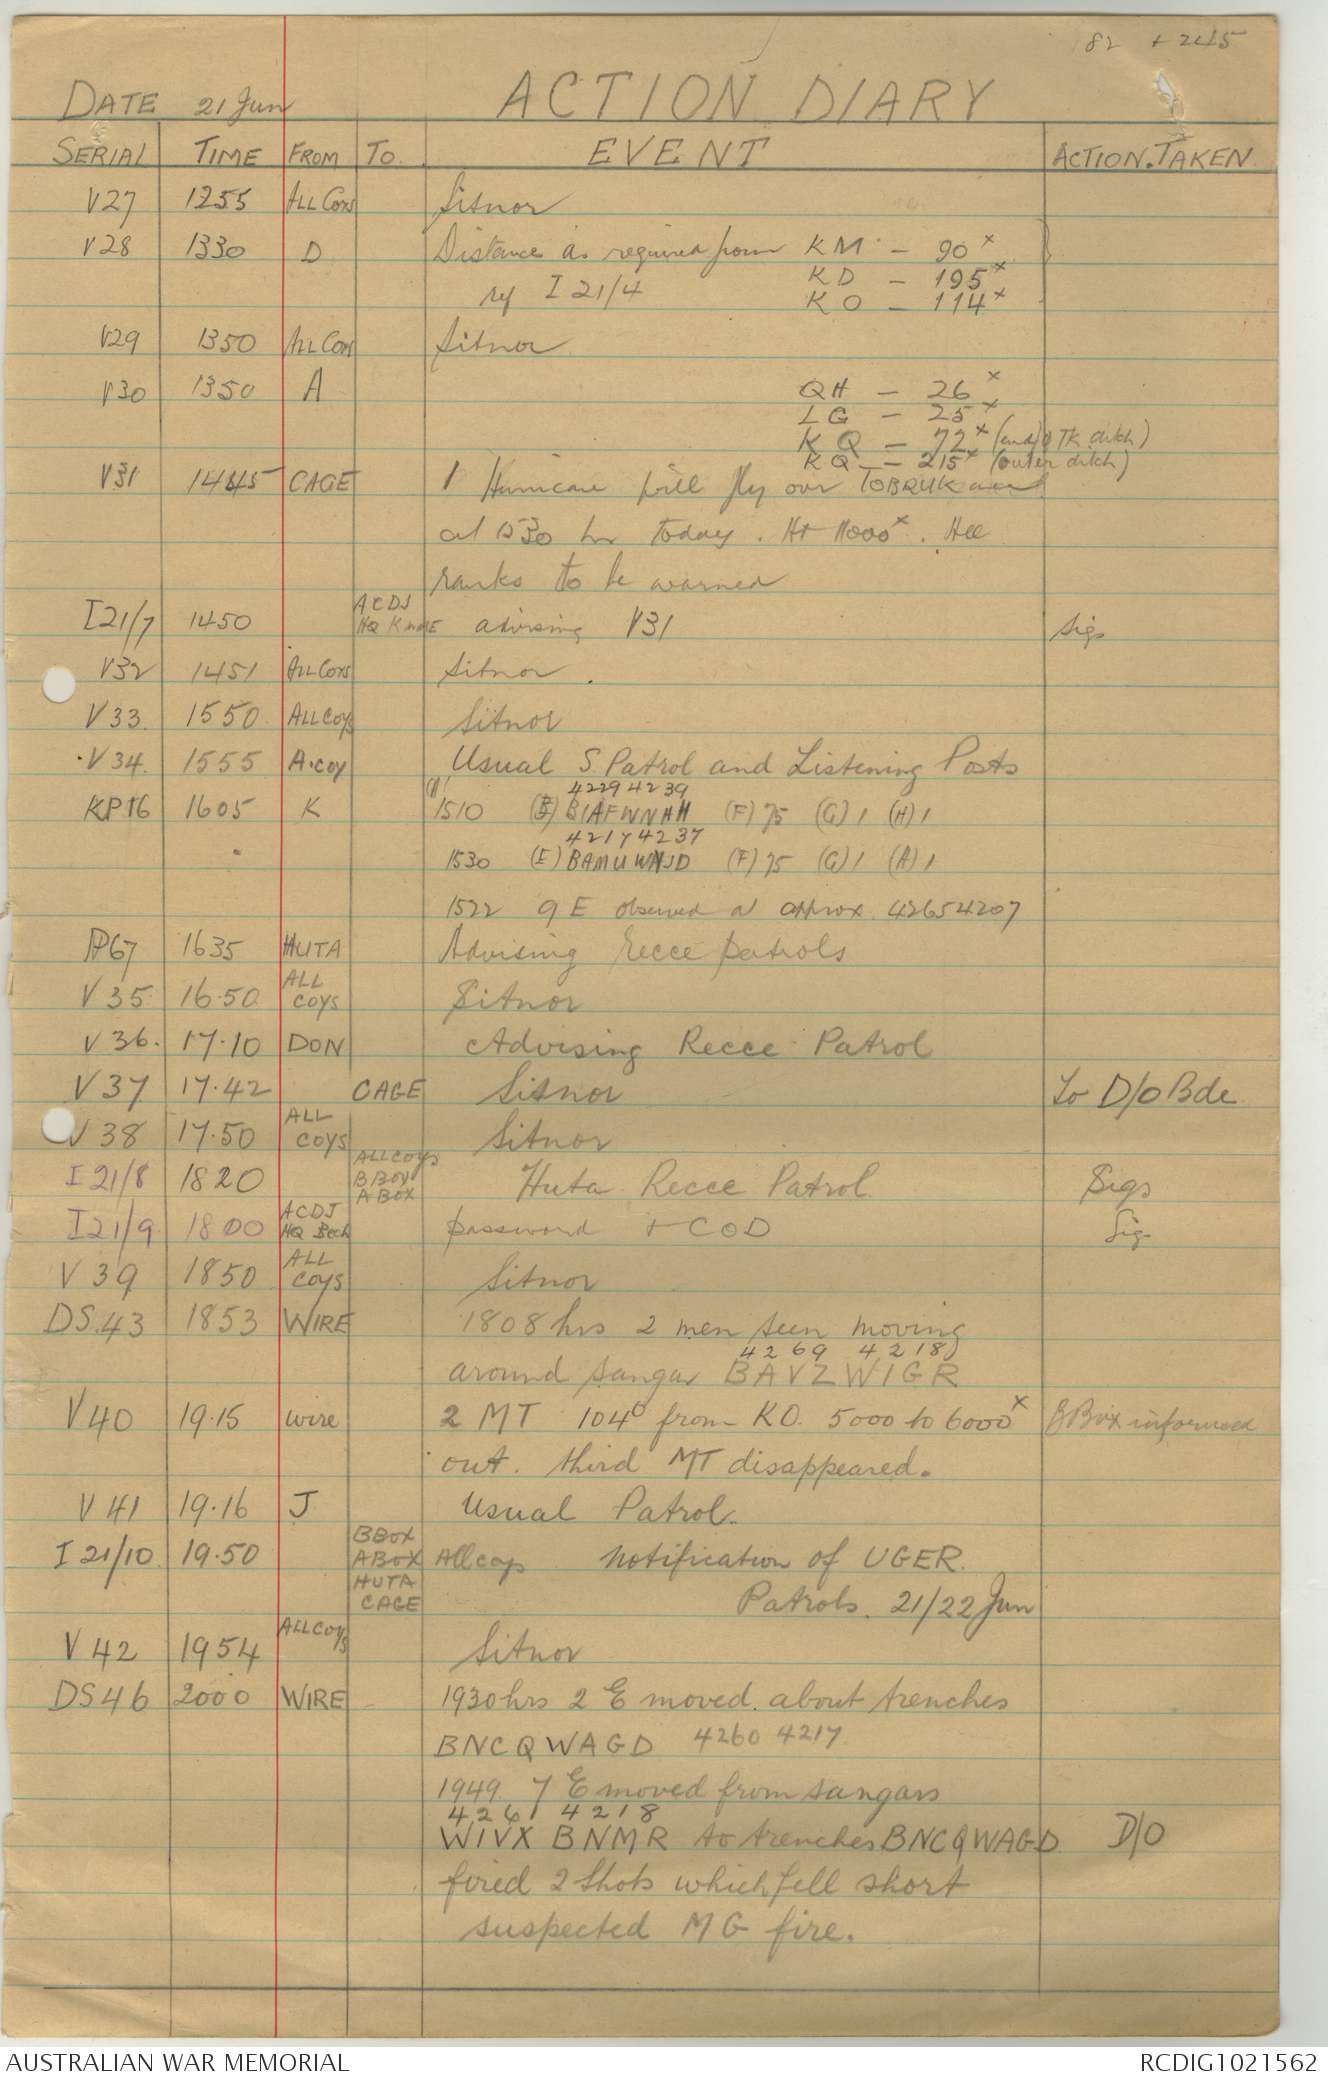 82 + 245
DATE 21 Jun ACTION DIARY
SERIAL TIME FROM TO EVENT ACTION TAKEN
V27 1255 ALL Coys Sitnor
V28 1330 D Distances as required from KM - 90x
ref I 21/4 KD - 195x
KO - 114x
V29 1350 ALL Coys Sitnor
V30 1350 A QH - 26x
LG - 25x
KQ - 72x (end) TK ditch)
KQ - 215x (outer ditch)
V31 1445 CAGE 1 Hurricane will fly over TOBRUK area
at 1530 hrs today. Ht 11000x. All
ranks to be warned
ACDJ
I21/7 1450 HQ K advising V31 Sigs
V32 1451 ALL Coys Sitnor.
V33. 1550 ALL Coys Sitnor
V34. 1555 A.coy Usual S. Patrol and Listening Posts
4229 4239
KP16 1605 K 1510 (E) BIAFWNHH (F) 75 (G) 1 (H) 1
4217 4237
1530 (E) BAMUWNJD (F) 75 (G) 1 (H) 1
1522 9 E observed at approx 42654207
P67 1635 HUTA Advising recce patrols
V35 16.50 ALL COYS Sitnor
V36. 17.10 DON Advising Recce Patrol
V37 17.42 CAGE Sitnor To D/O Bde
V38 17.50 ALL COYS Sitnor
ALL COYS
I 21/8 1820 B BOX Huta Recce Patrol Sigs
A BOX
ACDJ
I21/9 1800 HQ password + COD Sigs
V39 1850 ALL COYS Sitnor
DS.43 1853 WIRE 1808 hrs 2 men seen moving
4269 4218)
around sangar BAVZWIGR
V40 19.15 wire 2 MT 104° from KO. 5000 to 6000x B Box informed
out. third MT disappeared.
V41 19.16 J Usual Patrol.
B BOX
I 21/10 19.50 A BOX All coys Notification of UGER.
HUTA
CAGE Patrols. 21/22 Jun
V42 1954 ALL Coys Sitnor
DS46 2000 WIRE 1930 hrs 2 E moved about trenches
BNCQWAGD 4260 4217
1949. 7 E moved from sangars
4261 4218
WIVX BNMR to trenches BNCQWAGD D/O
fired 2 shots which fell short
suspected MG fire.
AUSTRALIAN WAR MEMORIAL RCDIG1021562